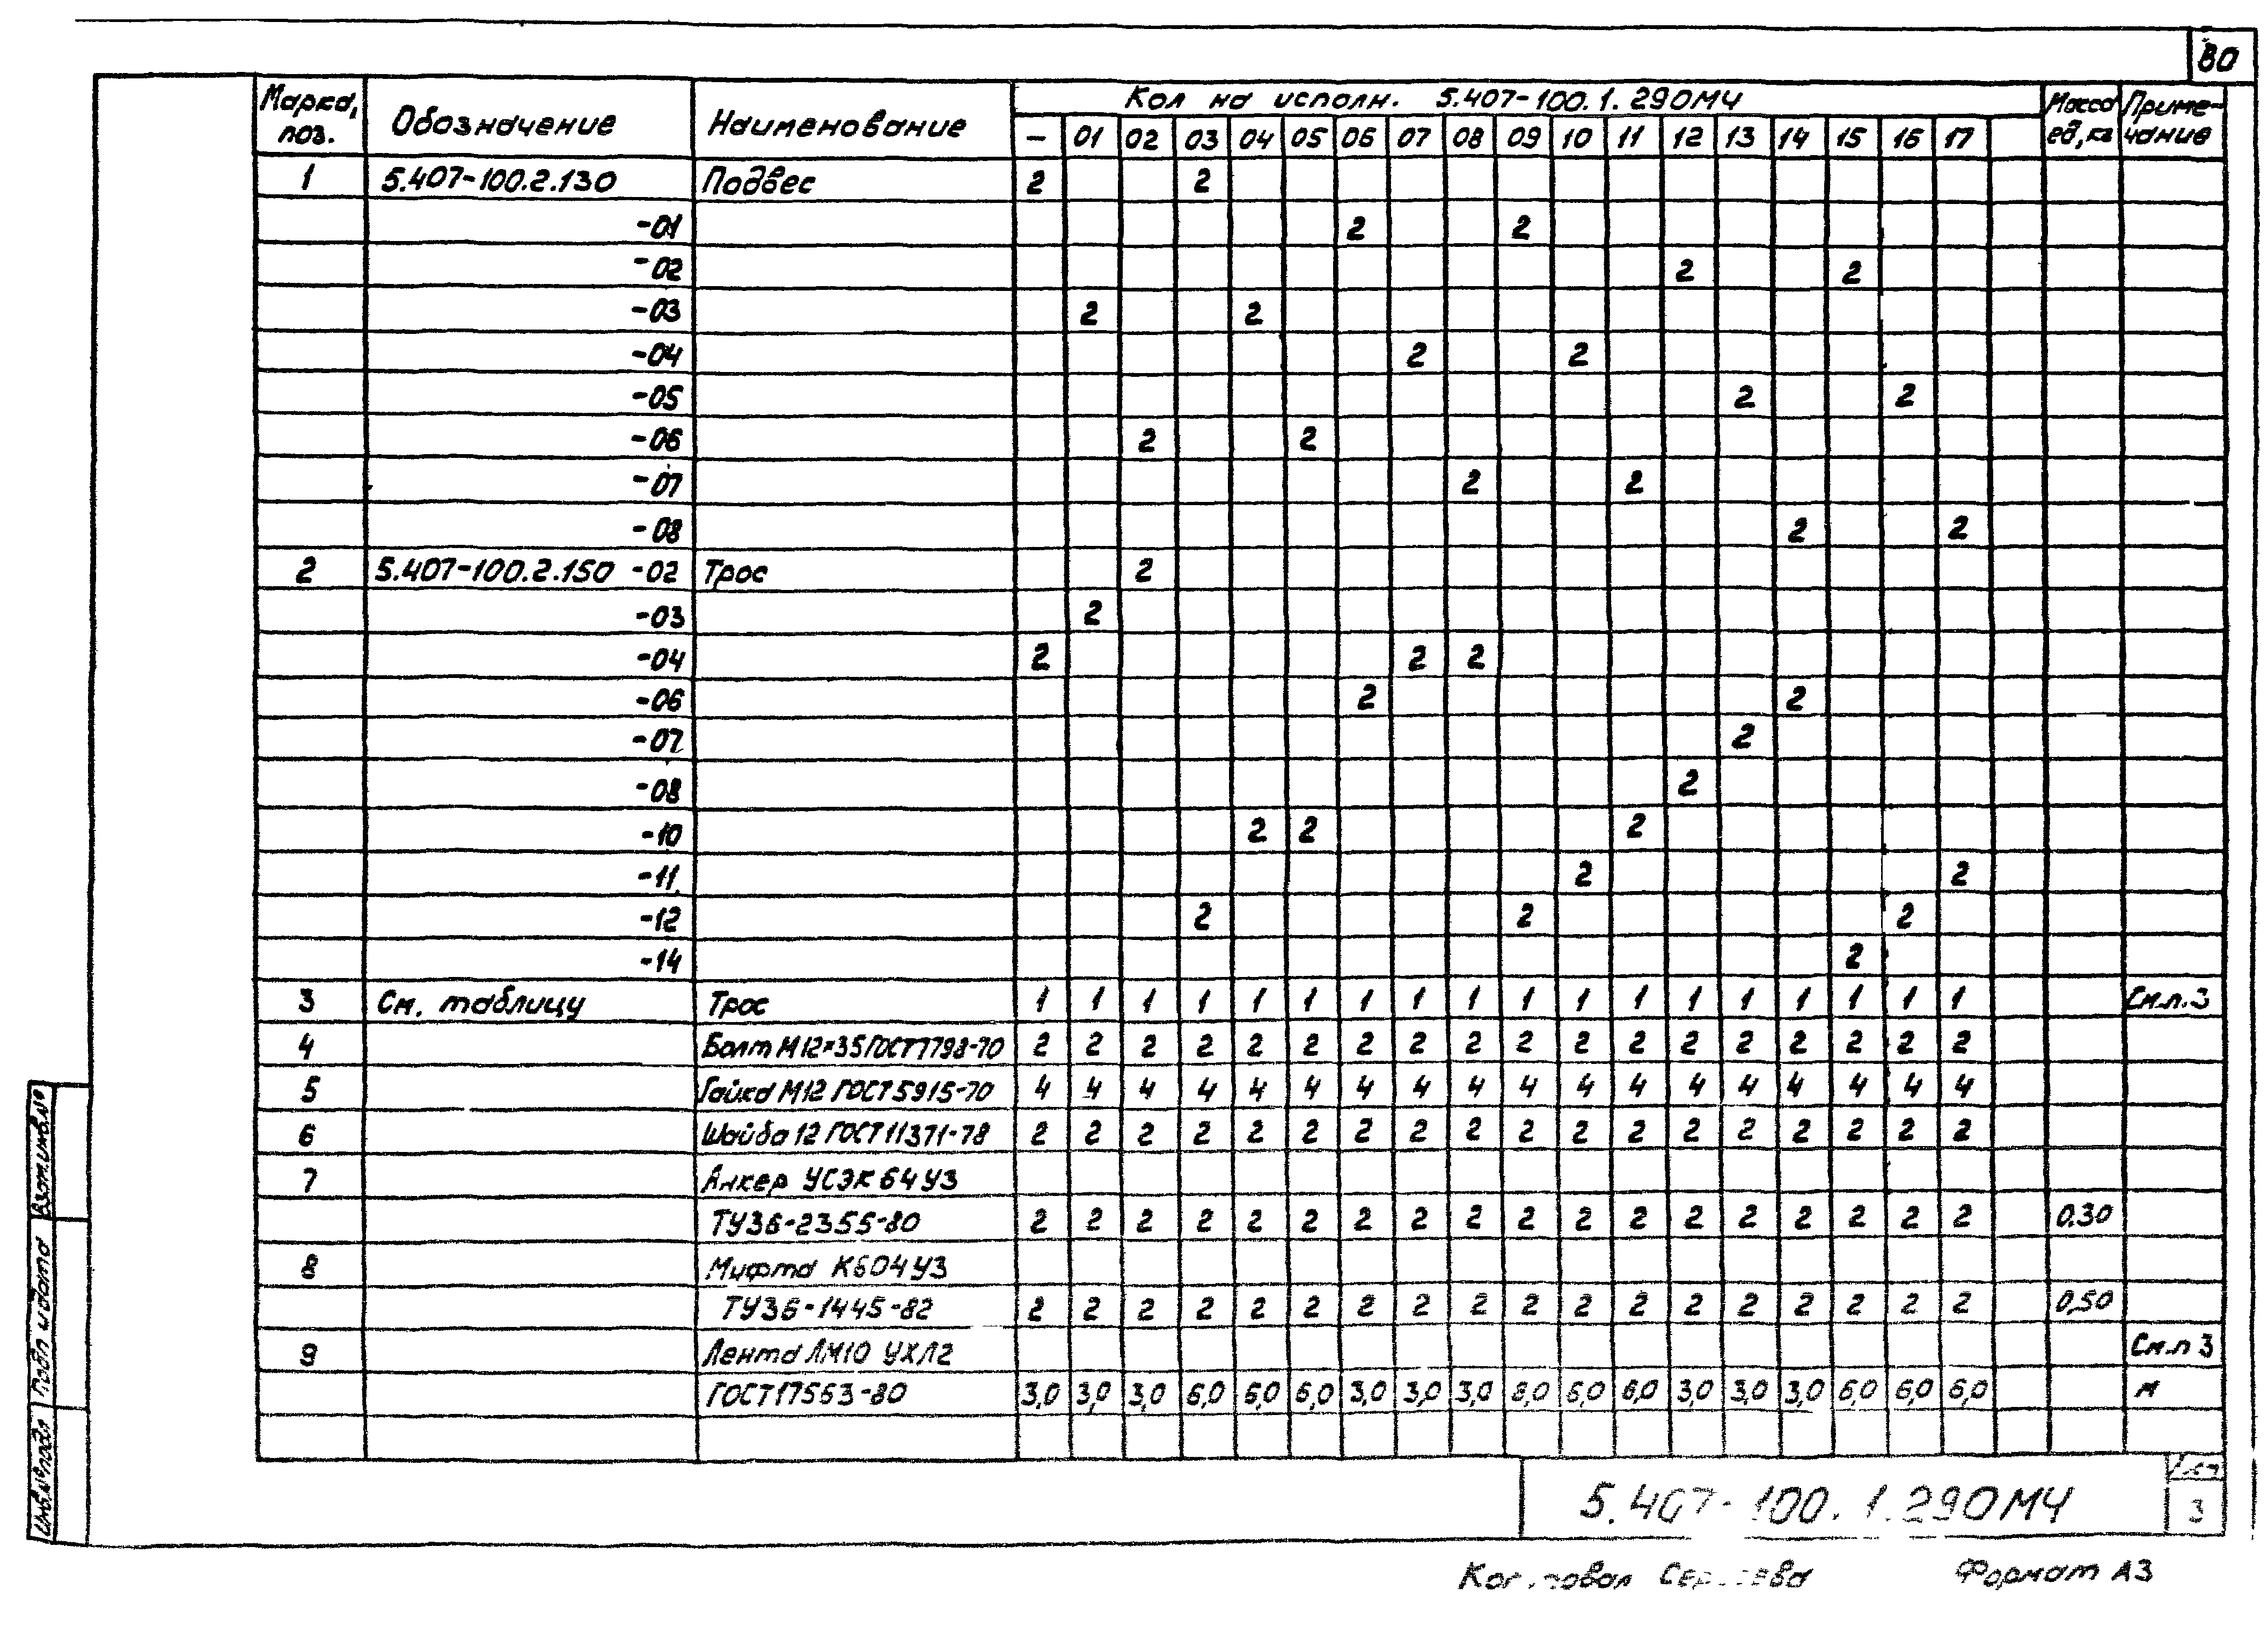 80
Марка, поз. Обозначение Наименование Кол на исполн. 5.407-100.1.290МЧ Масса ед, кг Приме-чание
— 01 02 03 04 05 06 07 08 09 10 11 12 13 14 15 16 17
1 5.407-100.2.130 Подвес 2 2
-01 2 2
-02 2 2
-03 2 2
-04 2 2
-05 2 2
-06 2 2
-07 2 2
-08 2 2
2 5.407-100.2.150 -02 Трос 2
-03 2
-04 2 2 2
-06 2 2
-07 2
-08 2
-10 2 2 2
-11 2 2
-12 2 2 2
-14 2
3 См. таблицу Трос 1 1 1 1 1 1 1 1 1 1 1 1 1 1 1 1 1 1 См.п.3
4 Болт М12×35 ГОСТ 7798-70 2 2 2 2 2 2 2 2 2 2 2 2 2 2 2 2 2 2
5 Гайка М12 ГОСТ 5915-70 4 4 4 4 4 4 4 4 4 4 4 4 4 4 4 4 4 4
6 Шайба 12 ГОСТ 11371-78 2 2 2 2 2 2 2 2 2 2 2 2 2 2 2 2 2 2
7 Анкер УСЭК 64 У3
ТУ36-2355-80 2 2 2 2 2 2 2 2 2 2 2 2 2 2 2 2 2 2 0.30
8 Муфта К604У3
ТУ36-1445-82 2 2 2 2 2 2 2 2 2 2 2 2 2 2 2 2 2 2 0,50
9 Лента ЛМ10 УХЛ2 См.п 3
ГОСТ 17563-80 3,0 3,0 3,0 6,0 6,0 6,0 3,0 3,0 3,0 6,0 6,0 6,0 3,0 3,0 3,0 6,0 6,0 6,0 м
Взам.инв.№
Подп и дата
Инв.№подл
5.407-100.1.290МЧ
Лист
3
Формат А3